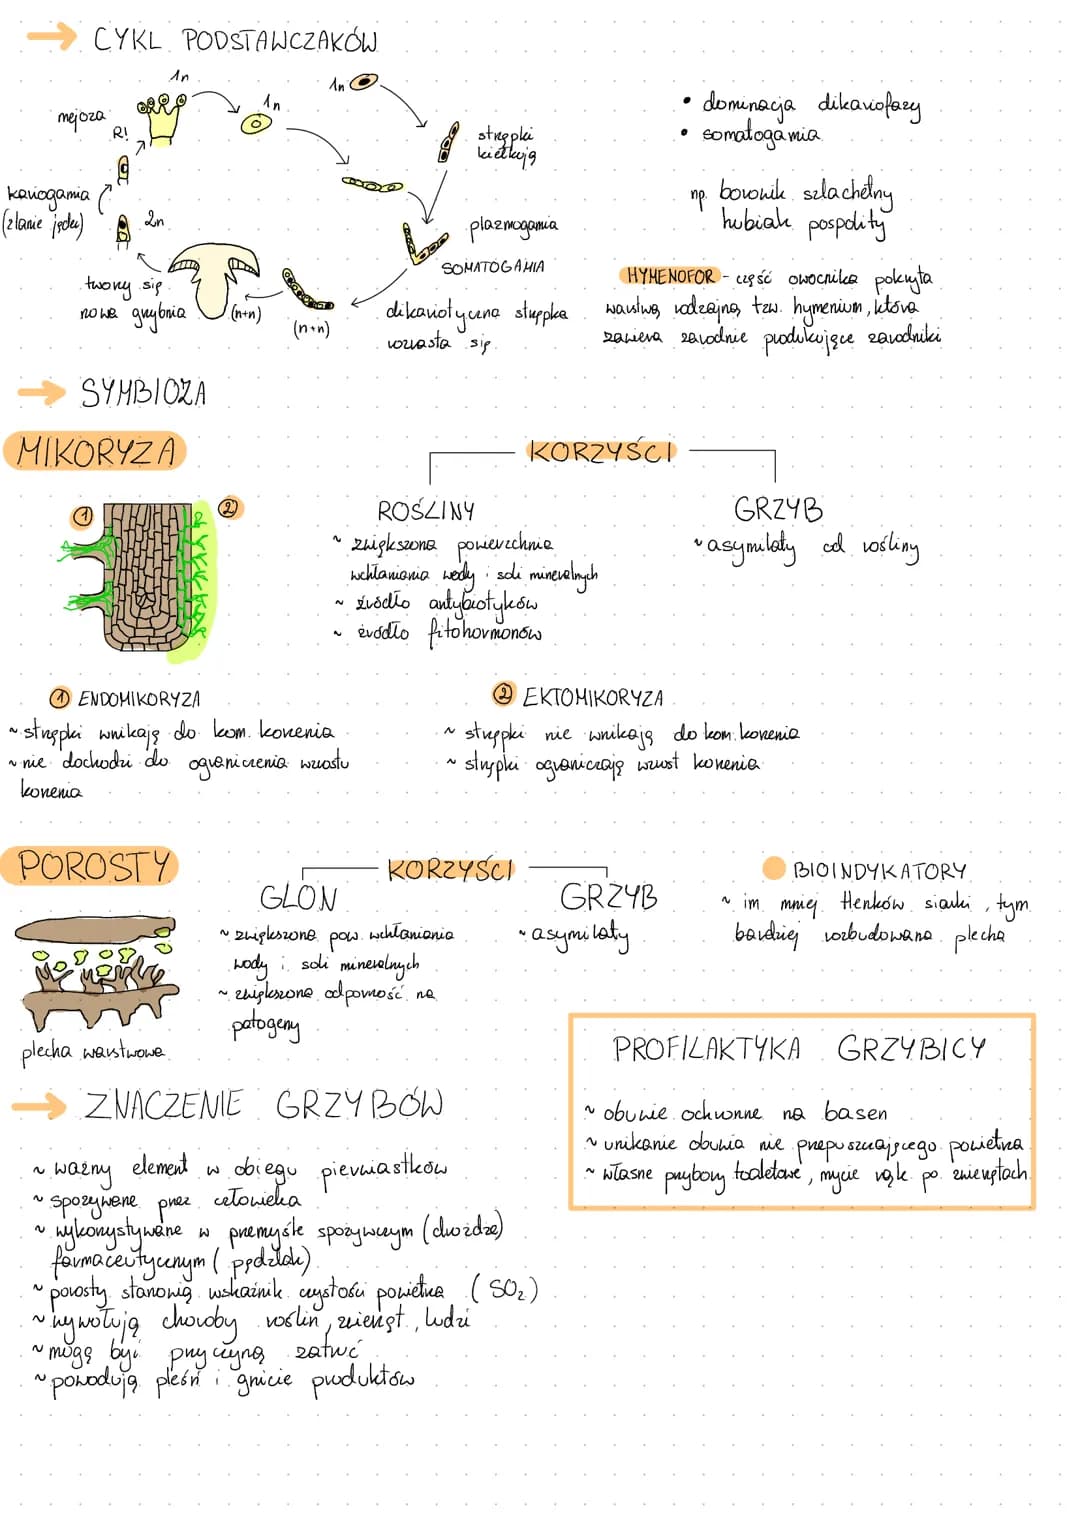 → CYKL PODSTAWCZAKÓW
1n
1n
1n
mejoza
R!
strzępki
kiełkują
kariogamia
(zlanie jąder)
2n
plazmogamia
SOMATOGAMIA
tworzy się
nowa grzybnia
(n+n)
(n+n)
dikariotyczna strzępka
rozrasta się
• dominacja dikariofazy
• somatogamia
np. borowik szlachetny
hubiak pospolity
HYMENOFOR - część owocnika pokryta
warstwą rodzajną tzw. hymenium, która
zawiera zarodnie produkujące zarodniki
→ SYMBIOZA
MIKORYZA
KORZYŚCI
1
2
ROŚLINY
~ zwiększona powierzchnia
wchłaniania wody i soli mineralnych
~ źródło antybiotyków
~ źródło fitohormonów
GRZYB
~ asymilaty od rośliny
1 ENDOMIKORYZA
~ strzępki wnikają do kom. korzenia
~ nie dochodzi do ograniczenia wzrostu
korzenia
2 EKTOMIKORYZA
~ strzępki nie wnikają do kom. korzenia
~ strzępki ograniczają wzrost korzenia
POROSTY
KORZYŚCI
GLON
~ zwiększona pow. wchłaniania
wody i soli mineralnych
~ zwiększona odporność na
patogeny
GRZYB
~ asymilaty
BIOINDYKATORY
~ im mniej tlenków siarki, tym
bardziej rozbudowana plecha
plecha warstwowa
PROFILAKTYKA GRZYBICY
~ obuwie ochronne na basen
~ unikanie obuwia nie przepuszczającego powietrza
~ własne przybory toaletowe, mycie rąk po zwierzętach
→ ZNACZENIE GRZYBÓW
~ ważny element w obiegu pierwiastków
~ spożywane przez człowieka
~ wykorzystywane w przemyśle spożywczym (drożdże)
farmaceutycznym (pędzlak)
~ porosty stanowią wskaźnik czystości powietrza (SO₂)
~ wywołują choroby roślin, zwierząt, ludzi
~ mogą być przyczyną zatruć
~ powodują pleśń i gnicie produktów